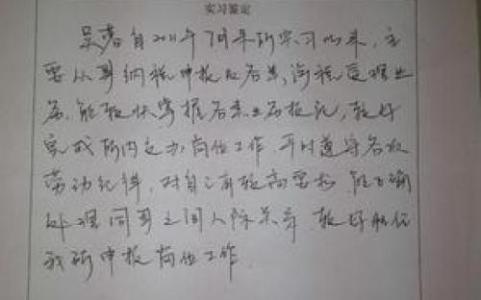 实习鉴定
吴蓉自2011年7月来所实习以来，主
要从事纳税申报及各类涉税受理业
务，能较快掌握各类业务技巧，较好
完成所内交办岗位工作，平时遵守各项
劳动纪律，对自己有较高要求，能正确
处理同事之间人际关系，较好胜任
我所申报岗位工作。